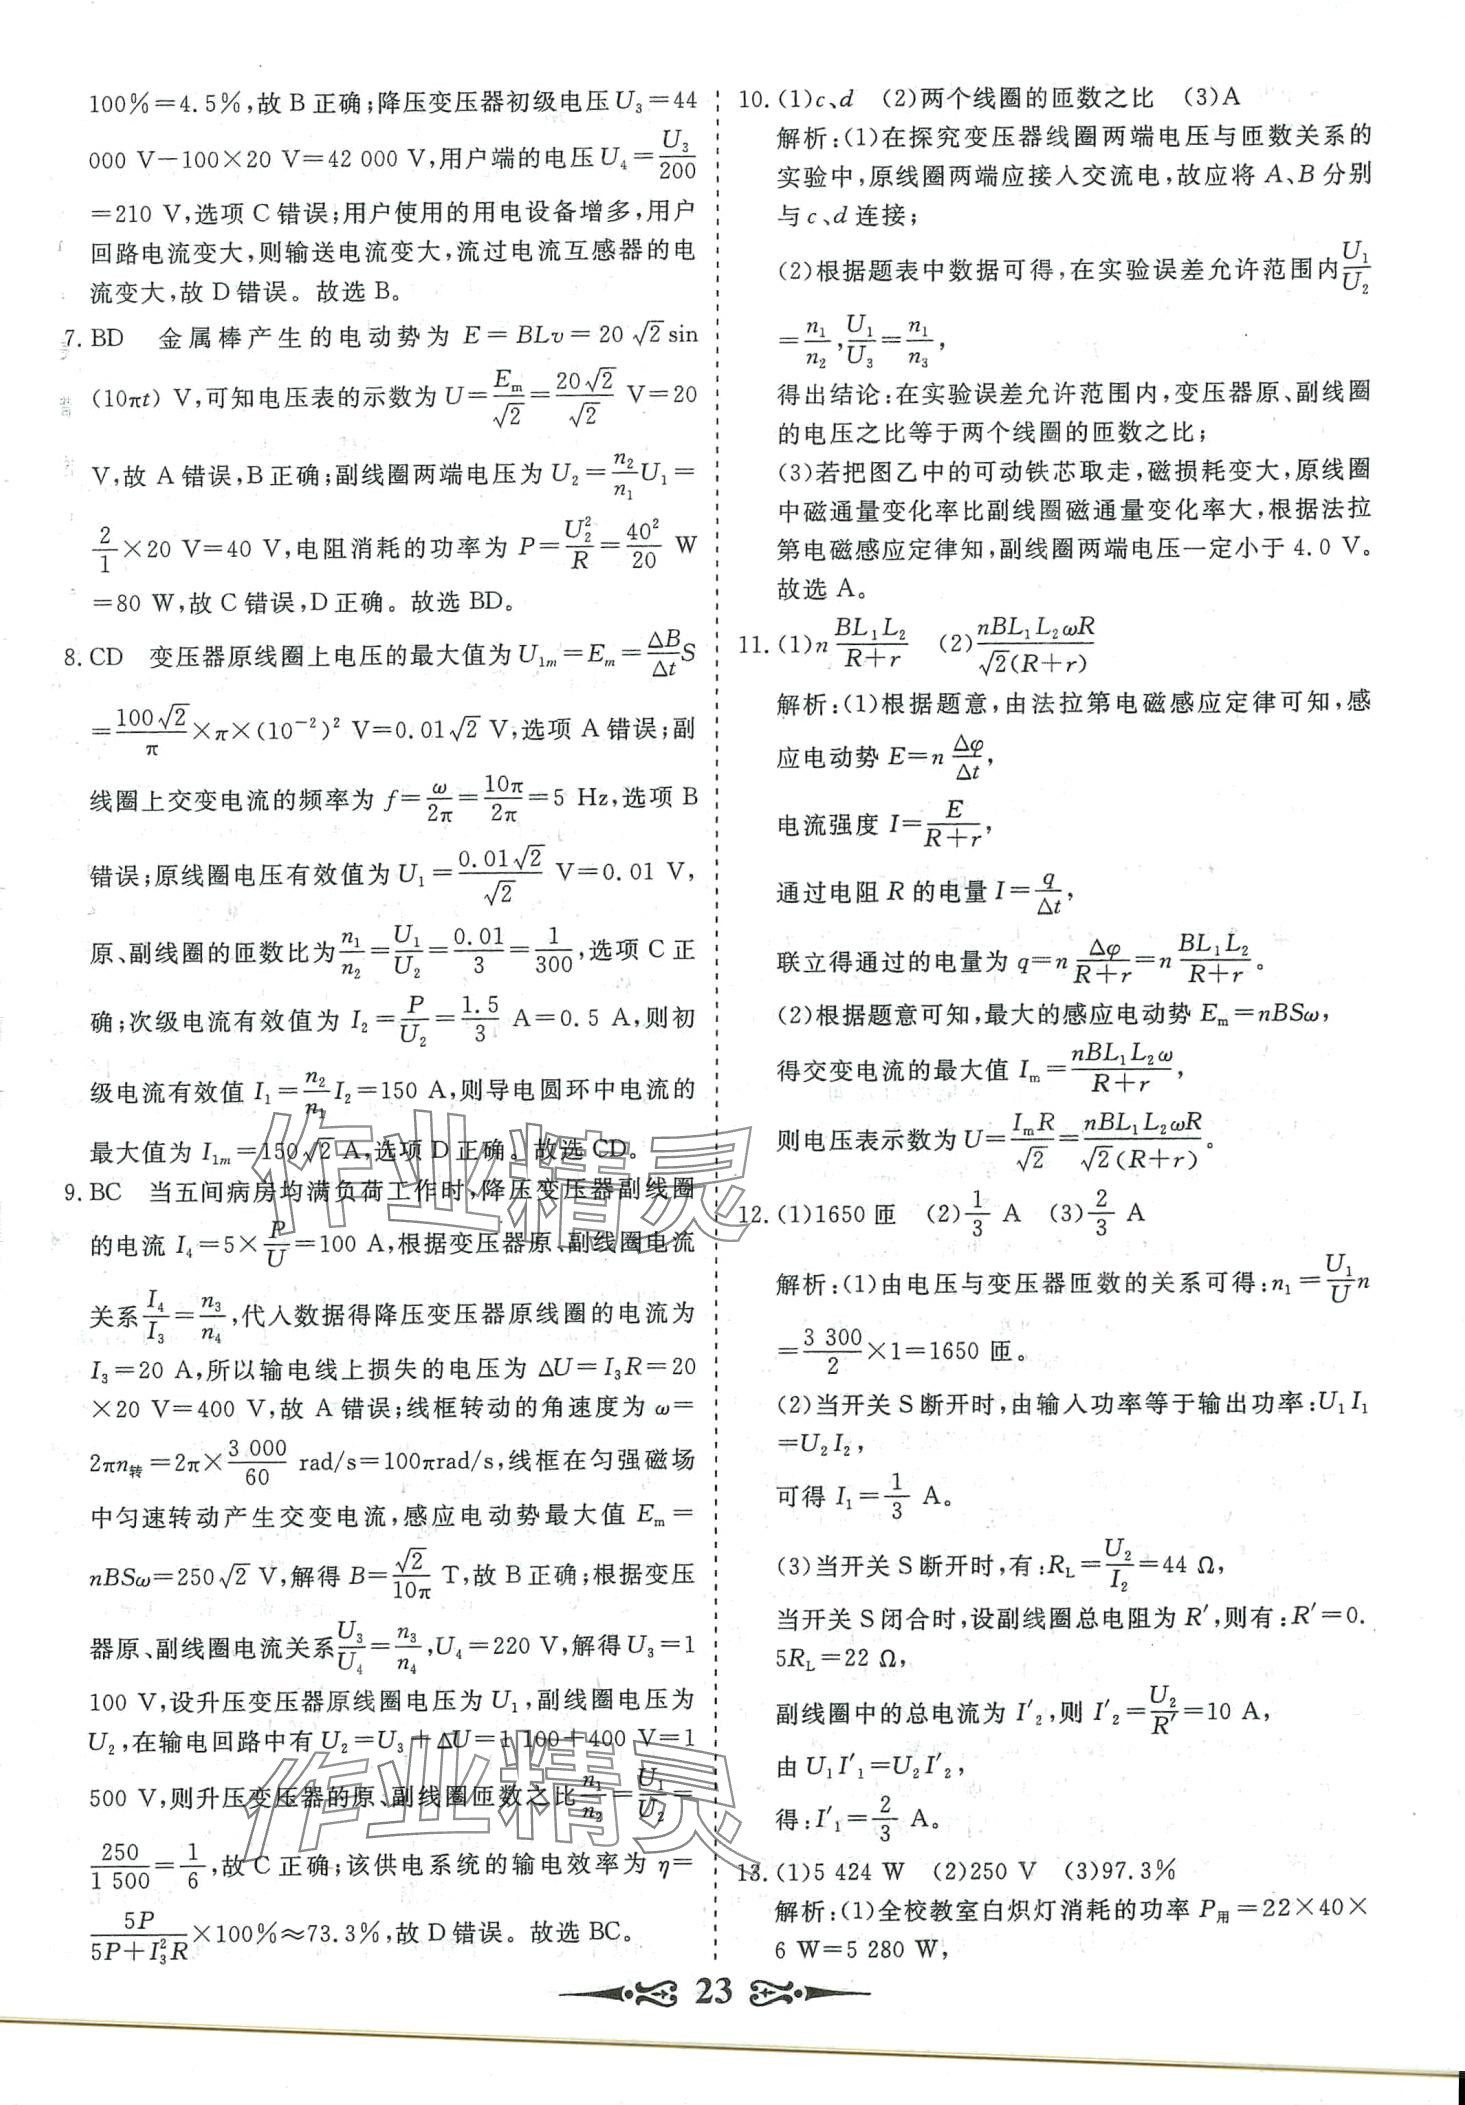 100%=4.5%,故B正确;降压变压器初级电压U₃=44
000 V-100×20 V=42 000 V,用户端的电压U₄=U₃/200
=210 V,选项C错误;用户使用的用电设备增多,用户
回路电流变大,则输送电流变大,流过电流互感器的电
流变大,故D错误。故选B。
7. BD 金属棒产生的电动势为 E=BLv=20√2sin
(10πt) V,可知电压表的示数为U=Eₘ/√2=20√2/√2 V=20
V,故A错误,B正确;副线圈两端电压为U₂=n₂/n₁U₁=
2/1×20 V=40 V,电阻消耗的功率为 P=U₂²/R=40²/20 W
=80 W,故C错误,D正确。故选BD。
8. CD 变压器原线圈上电压的最大值为U₁ₘ=Eₘ=ΔB/ΔtS
=100√2/π×π×(10⁻²)² V=0.01√2 V,选项A错误;副
线圈上交变电流的频率为f=ω/2π=10π/2π=5 Hz,选项B
错误;原线圈电压有效值为U₁=0.01√2/√2 V=0.01 V,
原、副线圈的匝数比为n₁/n₂=U₁/U₂=0.01/3=1/300,选项C正
确;次级电流有效值为I₂=P/U₂=1.5/3 A=0.5 A,则初
级电流有效值I₁=n₂/n₁I₂=150 A,则导电圆环中电流的
最大值为I₁ₘ=150√2 A,选项D正确。故选CD。
9. BC 当五间病房均满负荷工作时,降压变压器副线圈
的电流I₄=5×P/U=100 A,根据变压器原、副线圈电流
关系I₄/I₃=n₃/n₄,代入数据得降压变压器原线圈的电流为
I₃=20 A,所以输电线上损失的电压为ΔU=I₃R=20
×20 V=400 V,故A错误;线框转动的角速度为ω=
2πn转=2π×3 000/60 rad/s=100πrad/s,线框在匀强磁场
中匀速转动产生交变电流,感应电动势最大值Eₘ=
nBSω=250√2 V,解得B=√2/10π T,故B正确;根据变压
器原、副线圈电流关系U₃/U₄=n₃/n₄,U₄=220 V,解得U₃=1
100 V,设升压变压器原线圈电压为U₁,副线圈电压为
U₂,在输电回路中有U₂=U₃+ΔU=1 100+400 V=1
500 V,则升压变压器的原、副线圈匝数之比n₁/n₂=U₁/U₂=
250/1 500=1/6,故C正确;该供电系统的输电效率为η=
5P/(5P+I₃²R)×100%≈73.3%,故D错误。故选BC。
10. (1)c、d (2)两个线圈的匝数之比 (3)A
解析:(1)在探究变压器线圈两端电压与匝数关系的
实验中,原线圈两端应接入交流电,故应将A、B分别
与c、d连接;
(2)根据题表中数据可得,在实验误差允许范围内U₁/U₂
=n₁/n₂,U₁/U₃=n₁/n₃,
得出结论:在实验误差允许范围内,变压器原、副线圈
的电压之比等于两个线圈的匝数之比;
(3)若把图乙中的可动铁芯取走,磁损耗变大,原线圈
中磁通量变化率比副线圈磁通量变化率大,根据法拉
第电磁感应定律知,副线圈两端电压一定小于4.0 V。
故选A。
11. (1)n BL₁L₂/(R+r) (2)nBL₁L₂ωR/√2(R+r)
解析:(1)根据题意,由法拉第电磁感应定律可知,感
应电动势E=nΔφ/Δt,
电流强度I=E/(R+r),
通过电阻R的电量I=q/Δt,
联立得通过的电量为q=nΔφ/(R+r)=nBL₁L₂/(R+r)。
(2)根据题意可知,最大的感应电动势Eₘ=nBSω,
得交变电流的最大值Iₘ=nBL₁L₂ω/(R+r),
则电压表示数为U=IₘR/√2=nBL₁L₂ωR/√2(R+r)。
12. (1)1650匝 (2)1/3 A (3)2/3 A
解析:(1)由电压与变压器匝数的关系可得:n₁=U₁/U n
=3 300/2×1=1650匝。
(2)当开关S断开时,由输入功率等于输出功率:U₁I₁
=U₂I₂,
可得I₁=1/3 A。
(3)当开关S断开时,有:R_L=U₂/I₂=44 Ω,
当开关S闭合时,设副线圈总电阻为R′,则有:R′=0.
5R_L=22 Ω,
副线圈中的总电流为I′₂,则I′₂=U₂/R′=10 A,
由U₁I′₁=U₂I′₂,
得:I′₁=2/3 A。
13. (1)5 424 W (2)250 V (3)97.3%
解析:(1)全校教室白炽灯消耗的功率P用=22×40×
6 W=5 280 W,
23
作业精灵
作业精灵